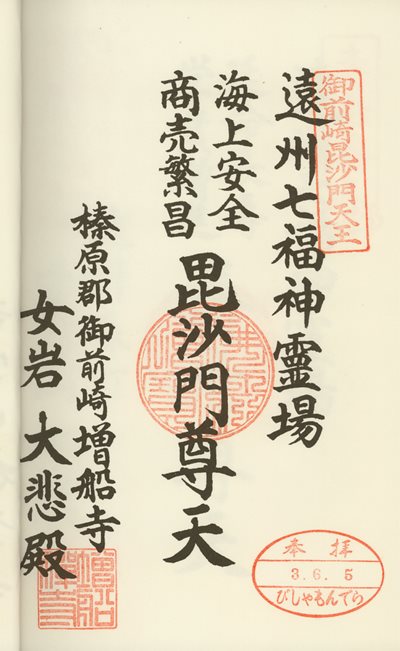 御前崎毘沙門天王
遠州七福神霊場
海上安全
商売繁昌
毘沙門尊天
榛原郡御前崎増船寺
女岩大悲殿
奉拝
3.6.5
びしゃもんでら
増船禅寺